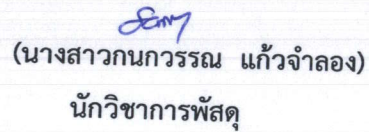 (นางสาวกนกวรรณ แก้วจำลอง)
นักวิชาการพัสดุ